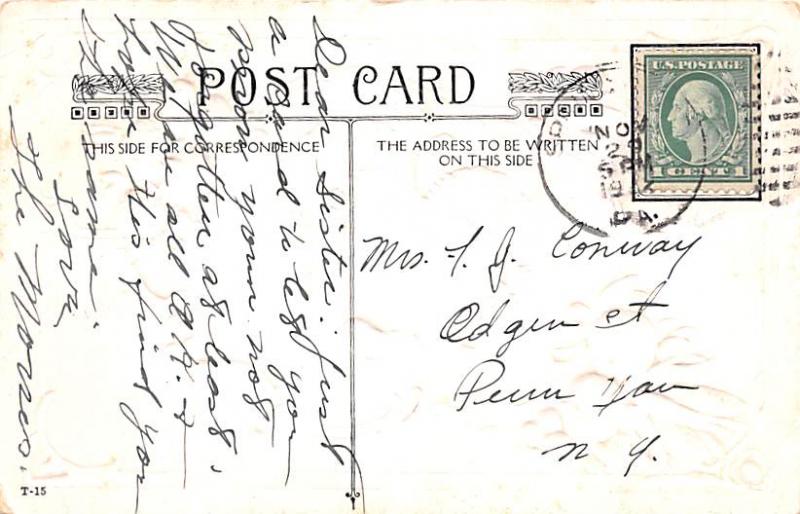 POST CARD
THIS SIDE FOR CORRESPONDENCE
THE ADDRESS TO BE WRITTEN
ON THIS SIDE
U.S. POSTAGE
1 CENT 1
NO
PA.
Dear Sister: Just
a card to let you
know youm not
forgotten at least.
We are all O.K. &
hope this find you
the same.
Love
The Morses.
Mrs. F. J. Conway
Edgen st
Penn Yan
N. Y.
T-15